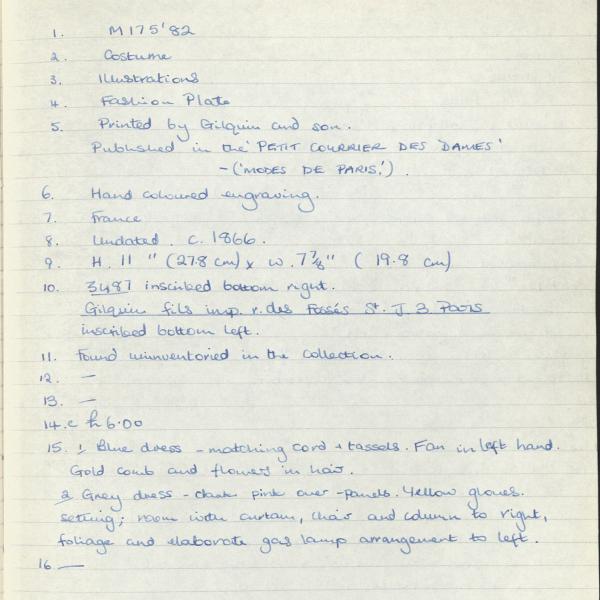 1. M175'82
2. Costume
3. Illustrations
4. Fashion Plate
5. Printed by Gilquin and son.
Published in the 'PETIT COURRIER DES DAMES'
- ('MODES DE PARIS.').
6. Hand coloured engraving.
7. France
8. Undated. c. 1866.
9. H. 11 " (27.8 cm) x W. 7 7/8" ( 19.8 cm)
10. 3487 inscribed bottom right.
Gilquin fils imp. r. des Fossés St. J. 3 Paris
inscribed bottom left.
11. Found uninventoried in the collection.
12. —
13. —
14. c £6.00
15. 1 Blue dress - matching cord + tassels. Fan in left hand.
Gold comb and flowers in hair.
2 Grey dress - dark pink over-panels. Yellow gloves.
setting; room with curtain, chair and column to right,
foliage and elaborate gas lamp arrangement to left.
16 —